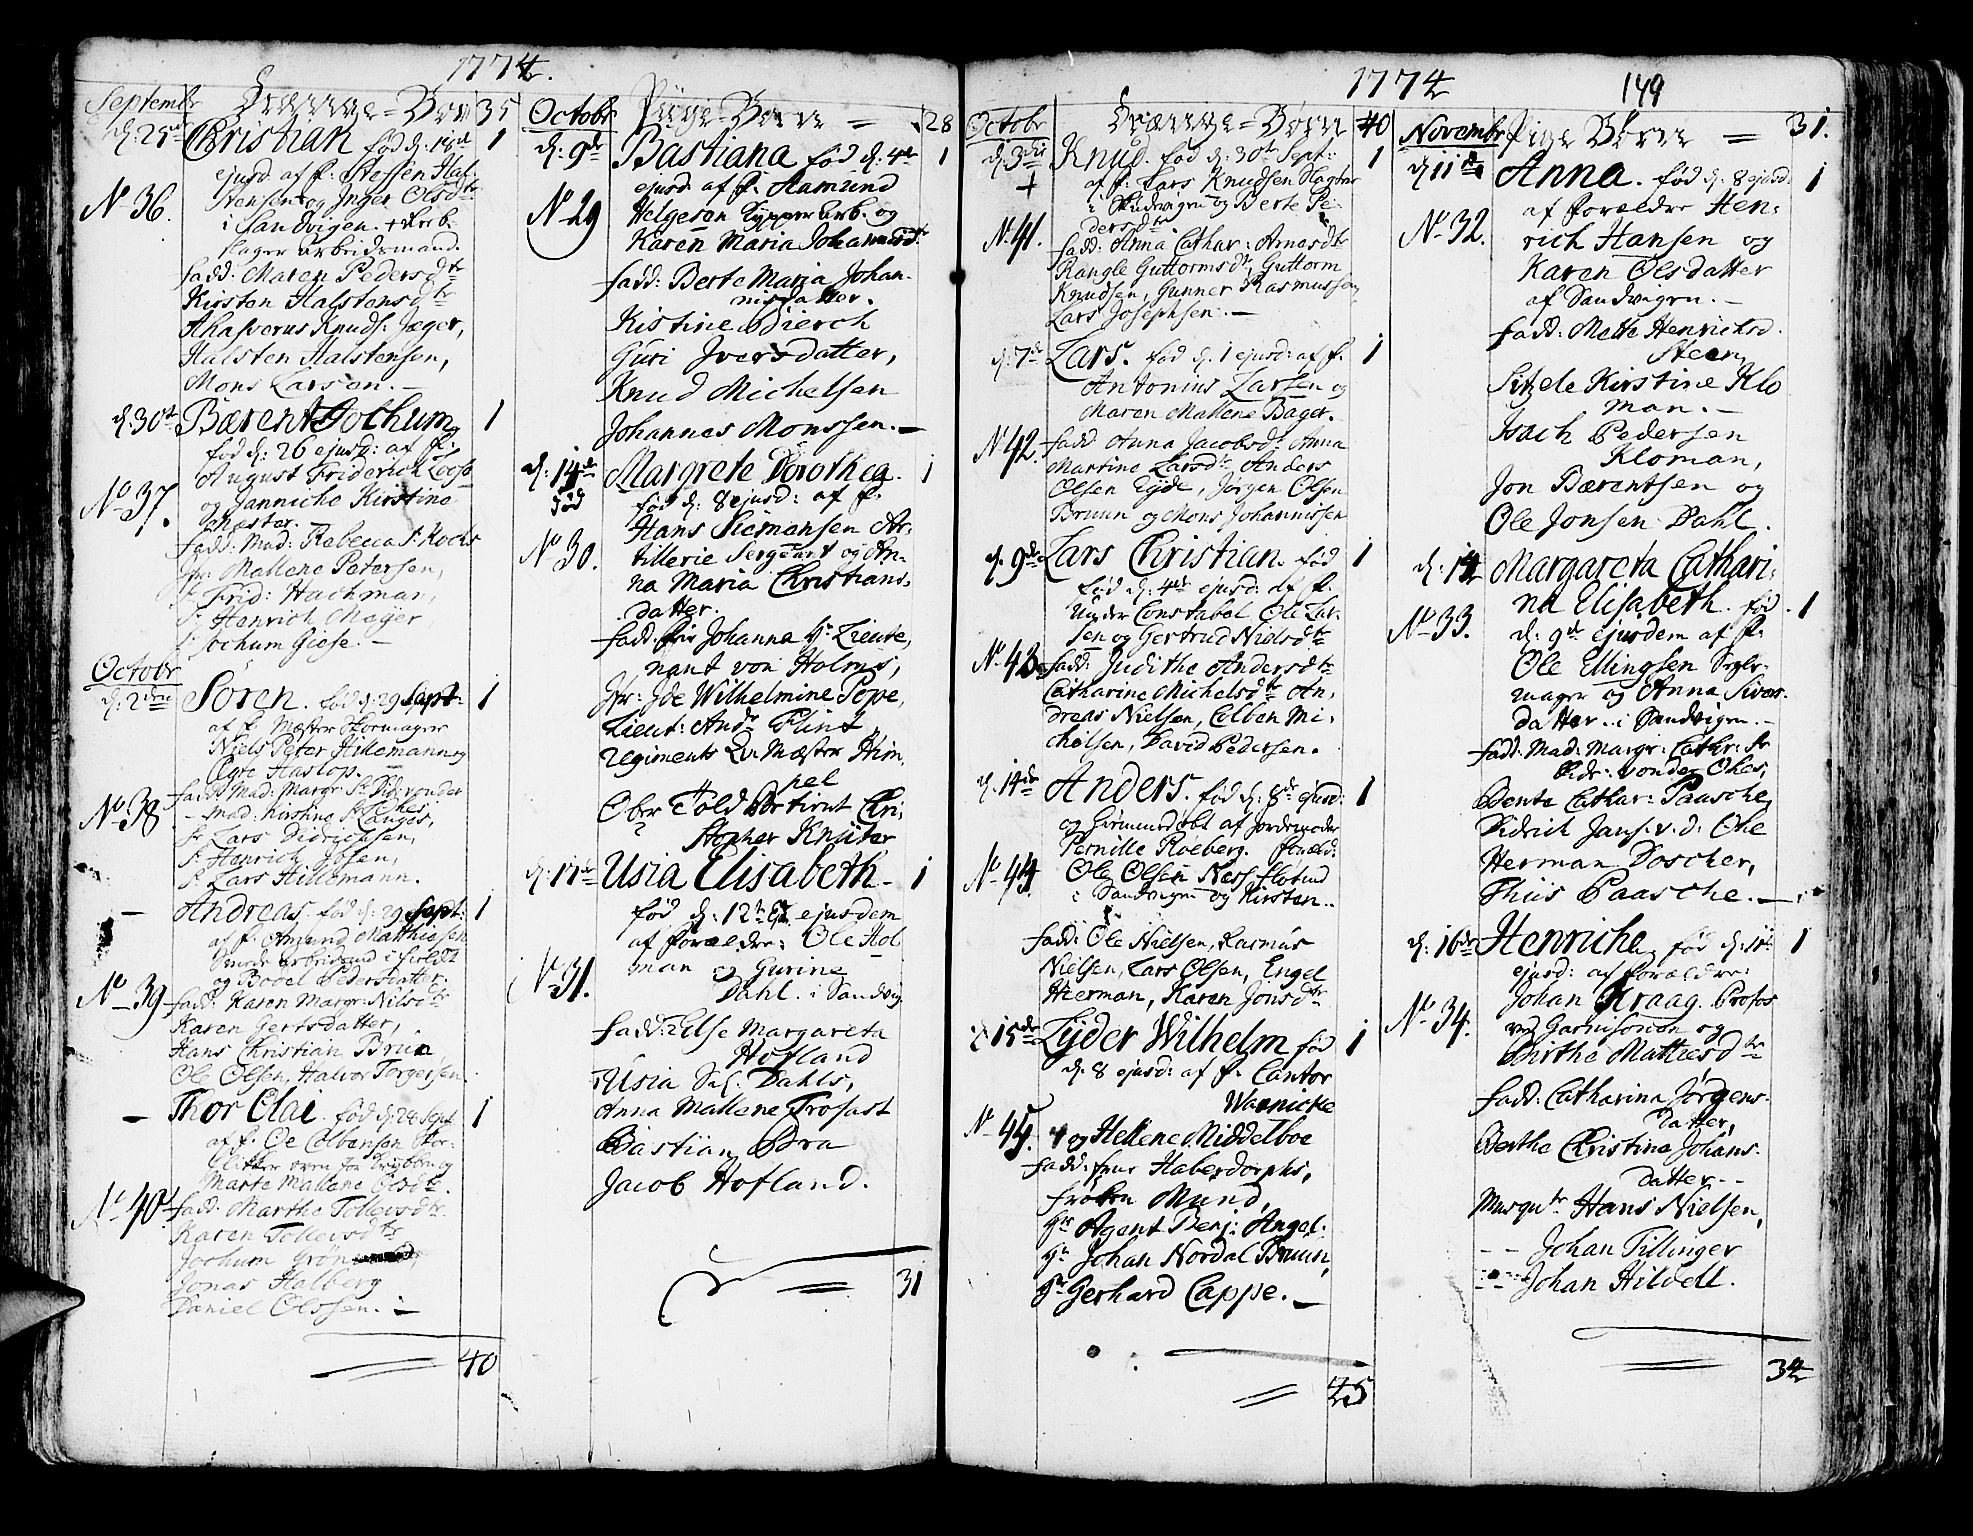 1774.
Septembr Drænge-Børn 35
d: 25de Christian fød d: 18de 1
ejusd: af f: Steffen Hal-
N° 36. stensen og Inger Olsdtr
i Sandvigen
arbeidsmand.
fadd: Maren Pedersdtr
Kirsten Halstensdtr
Ahasverus Knuds: Jæger,
Halsten Halstensen,
Mons Larsen. —
d: 30te Bærent Jochum 1
fød d: 26 ejusd: af f:
August Friderich
N° 37. og Jannicke Kirstine
fadd: Mad: Rebecca Sr Kochs
Jfr: Mallene Petersen,
Sr Frid: Hachman,
Sr Henrich Mejer
Sr Jochum Giese. —
Octobr
d: 2den Søren. fød d: 29 Sept: 1
af f: Mæster Skomager
Niels Peter Hillemann og
Haslop.
fadd: Mad: Margr: Sr Did: vonder
N° 38 — Mad: Kirstine Sr Langes,
Sr Lars Didrichsen,
Sr Henrich
Sr Lars Hillemann.
— Andreas. fød d: 29 Sept: 1
af f: Amund Mathiesen
arbeidsmand i
og Bodel Pedersdatter.
N° 39 fadd: Karen Margr: Nilsdtr
Karen Gertsdatter,
Hans Christian Brun
Ole Olsen, Halvor Torgersen.
— Thor Olai. fød d: 24 Sept 1
af f: Ole Colbensen
Marte Mallene Olsdtr.
N° 40 fadd: Marthe Tollevsdtr
Karen Tollevsdtr
Jochum Grøn
Jonas Halberg
Daniel Olssen. —
40
Octobr Pige-Børn = 28
d: 9de Bastiana fød d: 4de 1
ejusd: af f: Aamund
N° 29 Helgesen Typper arb. og
Karen Maria Johannisdtr
fadd: Berte Maria Johan-
nisdatter.
Kistine Bierch
Guri Iversdatter,
Knud Michelsen
Johannes Monssen. —
d: 14de Margrete Dorothea. 1
fød d: 8 ejusd: af f:
Hans Siemensen Ar-
N° 30. tillerie Sergeant og An-
na Maria Christians-
datter.
fadd: Johanna Hr Lieute-
nant von Holms,
Jfr: Ide Wilhelmine Pope,
Lieut: Andr Flint
regiments Qv: Mæster Him-
pel
Ober Told Betient Chri-
stopher Knüter
d: 17de Usia Elisabeth 1
fød d: 12te ejusdem
af forældre: Ole Hol
N° 31. man og Gurine
Dahl. i Sandvig
fadd: Else Margareta
Hofland
Usia Sal. Dahls,
Anna Mallene Trofast
Bastian Dra
Jacob Hofland.
31
1774 149
Octobr Drænge-Børn 40
d: 3die Knud. fød d: 30te Sept: 1
+ af f: Lars Knudsen Slagter
i Sandvigen og Berte Pe-
dersdtr
N° 41. fadd: Anna Cathar: Arnesdtr
Rangle Guttormsdtr, Guttorm
Knudsen, Gunner Rasmussen
Lars Josephsen. —
d: 7de Lars. fød d: 1 ejusd: af f: 1
Antonius Larsen og
Maren Mallene Bager.
N° 42. fadd Anna Jacobsdtr Anna
Martine Larsdtr Anders
Olsen Tyde, Jørgen Olsen
Bruun og Mons Johannissen
d: 9de Lars Christian. fød 1
fød d: 4de ejusd: af f:
Under Constabel Ole Lar-
sen og Gertrud Nielsdtr
N° 43 fadd: Judithe Andersdtr
Catharine Michelsdtr An-
dreas Nielsen, Colben Mi-
chelsen, David Pedersen.
d: 14de Anders. fød d: 8de ejusd: 1
og hiemmedøbt af Jordemoder
Pernille Roeberg. foræld:
N° 44 Ole Olsen Ness
i Sandvigen og Kirsten..
fadd: Ole Nielsen, Rasmus
Nielsen, Lars Olsen, Engel
Hierman, Karen Jonsdtr
d: 15de Lyder Wilhelm fød 1
d: 8 ejusd: af f: Cantor
Warnicke
N° 45. og Hellene Middelboe
fadd: frue Haberdorphs,
frøken Mund,
Hr Agent Benj: Angel.
Hr Johan Nordal Bruun,
Sr Gerhard Cappe. —
45
Novembr Pige Børn = 31.
d: 11te Anna. fød d: 8 ejusd: 1
af forældre Hen-
N° 32. rich Hansen og
Karen Olsdatter
af Sandvigen. —
fadd: Mette Henrichsd.
Steen
Sitzele Kirstine Klo
man. —
Isach Pedersen
Kloman,
Jon Bærentsen og
Ole Jonsen Dahl.
d: 14 Margareta Cathari-
na Elisabeth. fød 1
N° 33. d: 9de ejusdem af f:
Ole Ellingsen Segl-
mager og Anna Sivers-
datter.. i Sandvigen. —
fadd: Mad: Margr: Cathr: Sr
Didr: vonder Ohes,
Bente Cathar: Paasche,
Didrich Jans: v. d: Ohe
Herman Doscher,
Thiis Paasche. —
d: 16de Henriche, fød d: 11te 1
ejusd: af forældre:
N° 34. Johan Kraag. Profos
ved Garnisonen og
Birthe Mattiesdtr
fadd: Catharina Jørgens-
datter,
Berthe Christina Johans-
datter. —
Musqutr Hans Nielsen,
— — Johan Tillinger
— — Johan Hilvell.
34